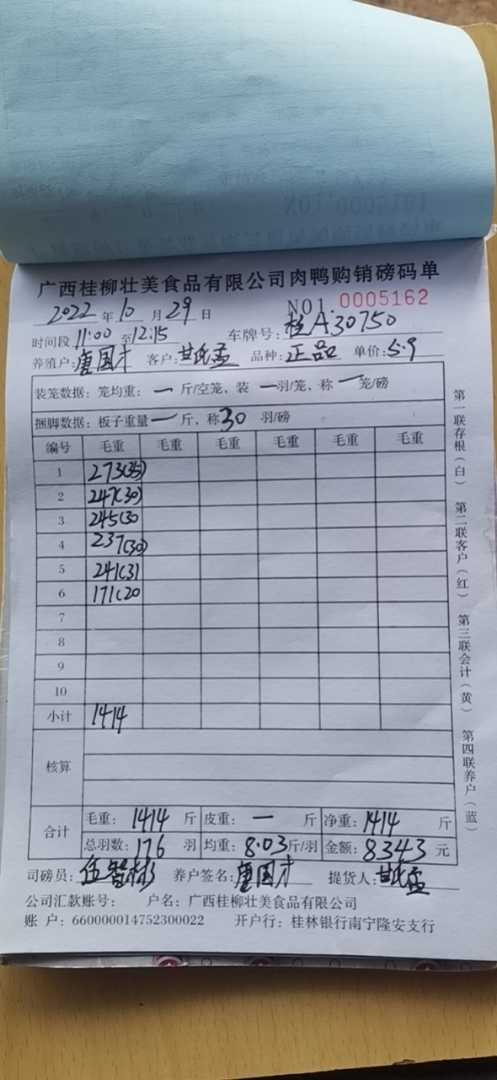 广西桂柳壮美食品有限公司肉鸭购销磅码单
2022年10月29日 NO1 0005162
时间段11:00至12:15 车牌号:桂A:30750
养殖户:唐国才 客户:甘氏孟 品种:正品 单价:5.9
装笼数据:笼均重:一斤/空笼,装一羽/笼,称一笼/磅
捆脚数据:板子重量一斤,称30羽/磅
编号 毛重 毛重 毛重 毛重 毛重 毛重
1 273(35)
2 247(30)
3 245(30
4 237(30)
5 241(31
6 171(20
7
8
9
10
小计 1414
核算
合计 毛重:1414斤 皮重:一斤 净重:1414斤
总羽数:176羽 均重:8.03斤/羽 金额:8343元
司磅员:伍智彬 养户签名:唐国才 提货人:甘氏孟
公司汇款账号: 户名:广西桂柳壮美食品有限公司
账户:660000014752300022 开户行:桂林银行南宁隆安支行
第一联存根(白) 第二联客户(红) 第三联会计(黄) 第四联养户(蓝)